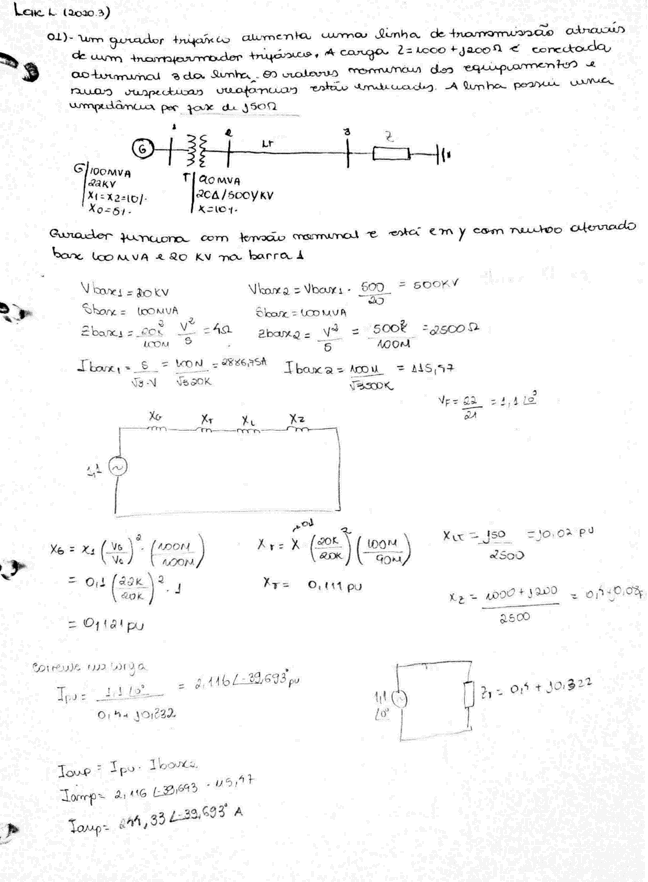 Lare L (2020.3)
01)- um gerador trifásico alimenta uma linha de transmissão através
de um transformador trifásico. A carga Z=1000+j200Ω é conectada
ao terminal 3 da linha. Os valores nominais dos equipamentos e
suas respectivas reatâncias estão indicados. A linha possui uma
impedância por fase de j50Ω
1 2 LT 3 Z
G
G 100MVA
22KV
X1=X2=10%
X0=5%
T 90MVA
20Δ/500Y KV
X=10%
Gerador funciona com tensão nominal e está em y com neutro aterrado
base 100MVA e 20 KV na barra 1
Vbase1=20KV
Sbase= 100MVA
Zbase1= 20k²/100M V²/S = 4Ω
Ibase1= S/√3·V = 100M/√3 20K = 2886,75A
Vbase2= Vbase1 · 500/20 = 500KV
Sbase= 100MVA
Zbase2= V²/S = 500k²/100M =2500Ω
Ibase2= 100M/√3 500K = 115,47
VF= 22/21 = 1,1 ∠0°
XG XT XL XZ
1,1
XG = X1 (VG/Vb)² · (100M/100M)
= 0,1 (22K/20K)² · 1
= 0,121 pu
XT= X (20K/20K)² (100M/90M)
XT= 0,111 pu
XLT = j50/2500 =j0.02 pu
XZ = 1000+j200/2500 = 0,4+j0,08
corrente na carga
Ipu= 1,1∠0°/0,4+j0,332 = 2,116∠-39,693° pu
1,1
∠0°
ZT=0,4+j0,322
Iamp = Ipu · Ibase2
Iamp= 2,116∠-39,693 · 115,47
Iamp= 244,33∠-39,693° A